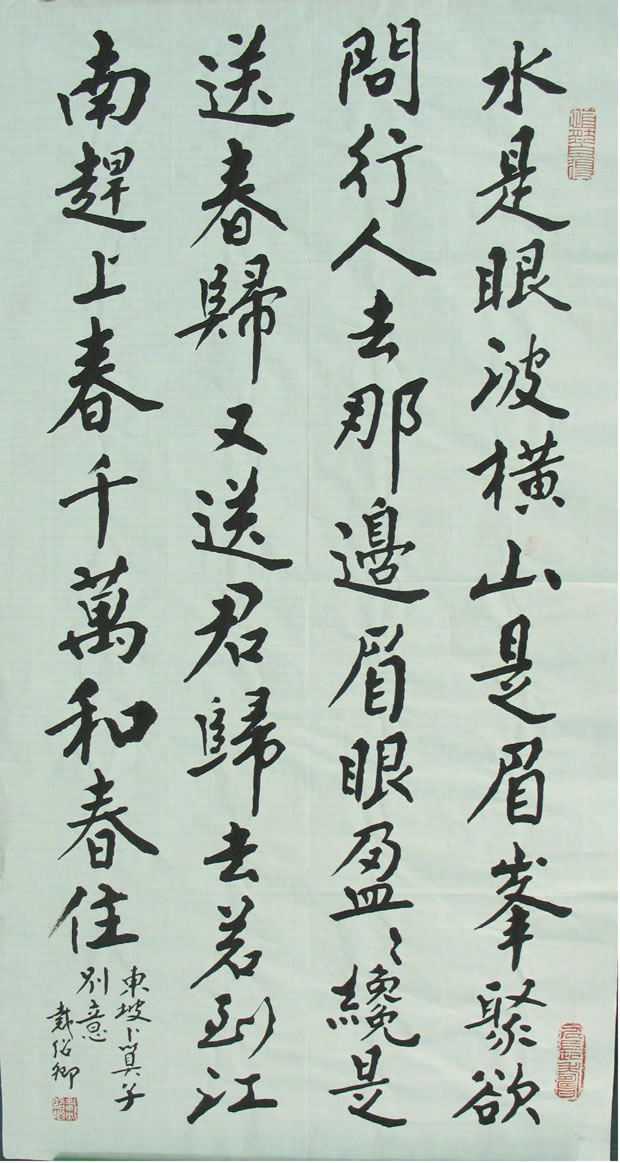 水是眼波橫山是眉峯聚欲
問行人去那邊眉眼盈〻纔是
送春歸又送君歸去若到江
南趕上春千萬和春住
東坡卜算子
別意
戴紹卿